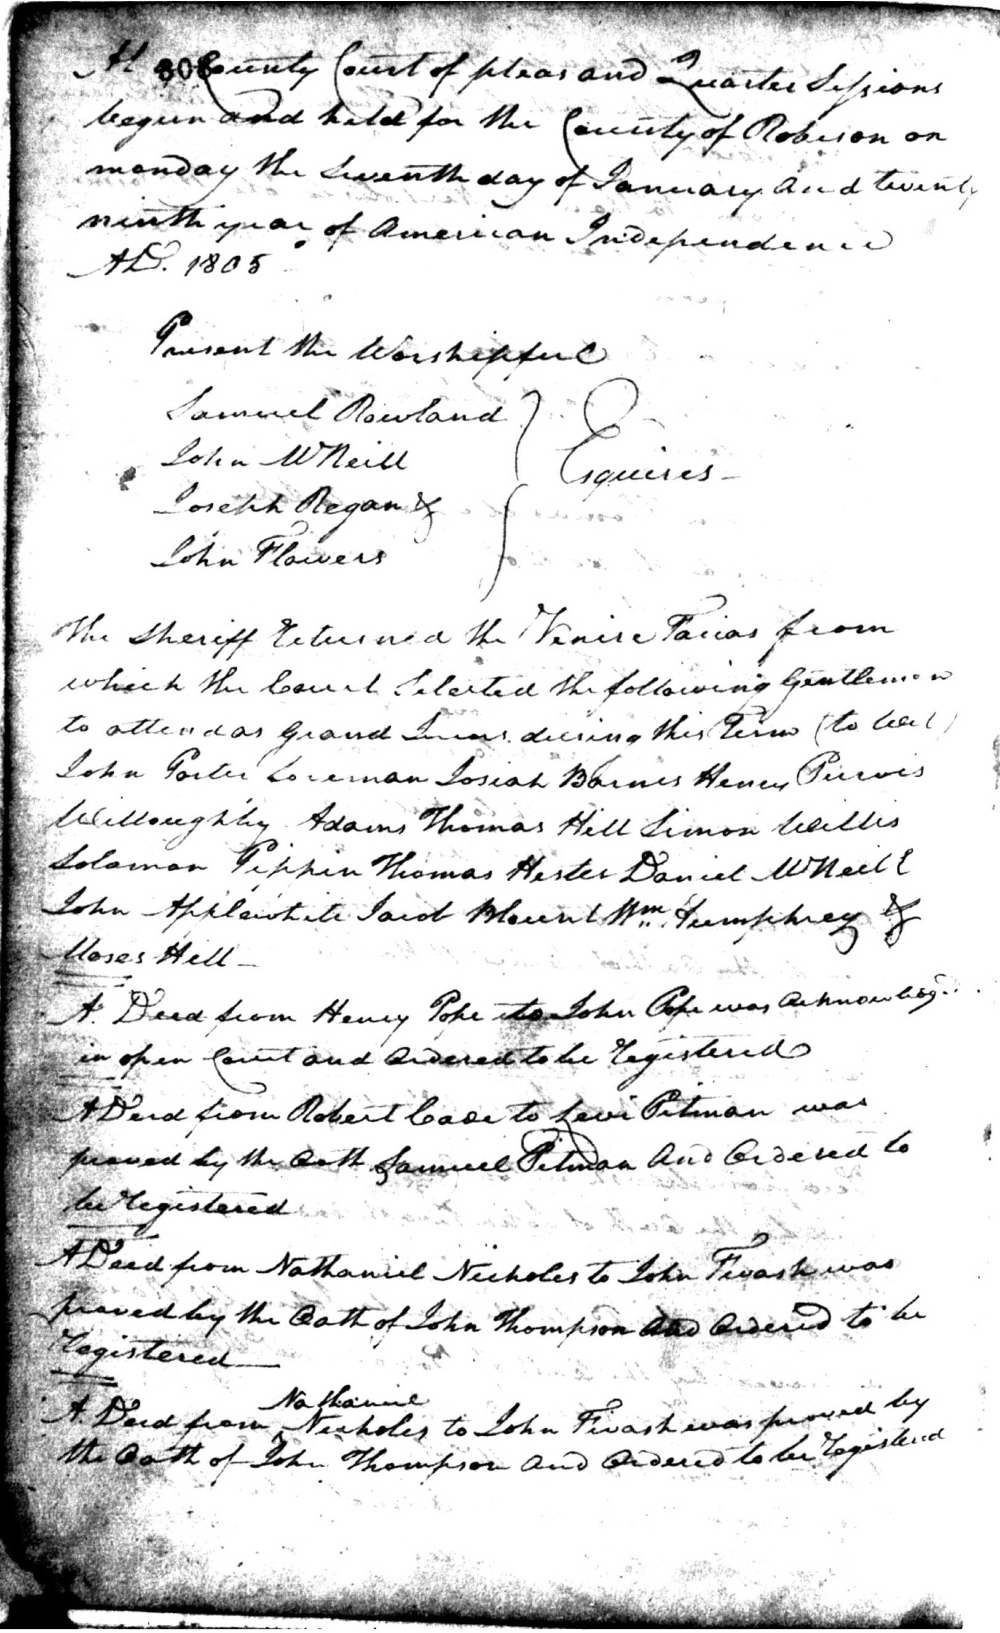 308
At a County Court of pleas and Quarter Sessions
begun and held for the County of Robeson on
monday the Seventh day of January and twenty
ninth year of American Independence
AD. 1805
Present the Worshipful
Samuel Rowland
John McNeill
Esquires
Joseph Regan &
John Flowers
The Sheriff returned the Venire Facias from
which the Court Selected the following Gentlemen
to attend as Grand Jurors during this Term (to wit)
John Porter foreman Josiah Barnes Henry Purvis
Willoughby Adams Thomas Hill Simon Willis
Solomon Pippin Thomas Hester Daniel McNeill
John Applewhite Jacob Blount Wm. Humphrey &
Moses Hill
A Deed from Henry Pope to John Pope was Acknowledg.
in open Court and Ordered to be registered
A Deed from Robert Case to Levi Pitman was
proved by the Oath Samuel Pitman And Ordered to
be registered
A Deed from Nathaniel Nicholes to John Fivash was
proved by the Oath of John Thompson And Ordered to be
registered
A Deed from Nathaniel Nicholes to John Fivash was proved by
the Oath of John Thompson and Ordered to be registered